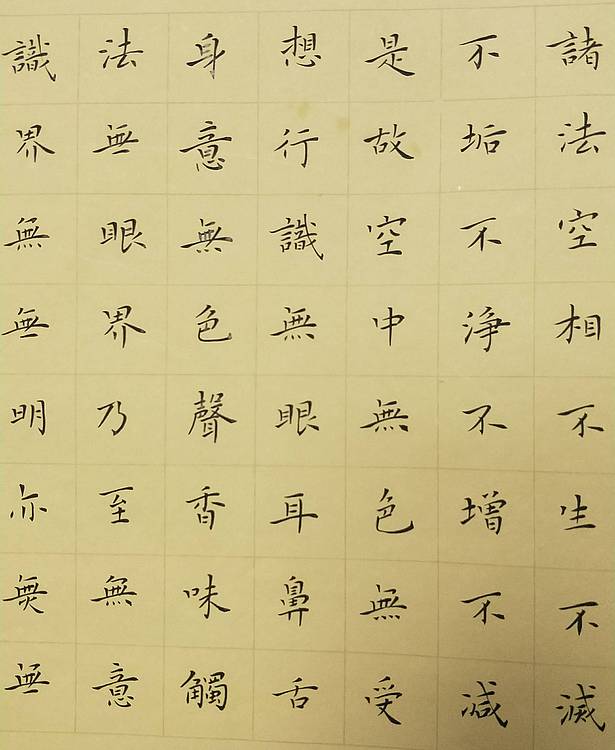 諸法空相不生不滅
不垢不淨不增不減
是故空中無色無受
想行識無眼耳鼻舌
身意無色聲香味觸
法無眼界乃至無意
識界無無明亦無無